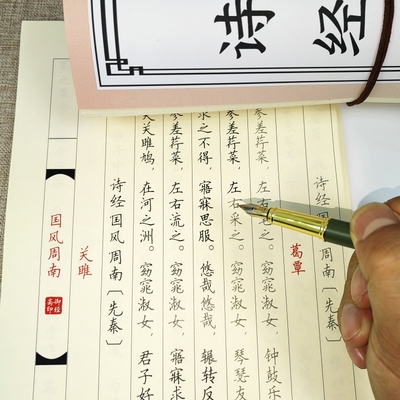 诗经
国风周南
关雎
诗经国风周南〔先秦〕
关关雎鸠，在河之洲。窈窕淑女，君子好
参差荇菜，左右流之。窈窕淑女，寤寐求
求之不得，寤寐思服。悠哉悠哉，辗转反
参差荇菜，左右采之。窈窕淑女，琴瑟友
参差荇菜，左右之。窈窕淑女，钟鼓乐
葛覃
诗经国风周南